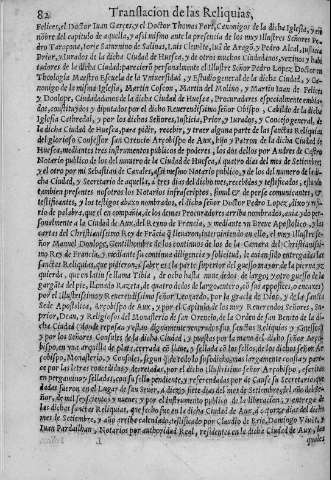 82 Translacion de las Reliquias,
Felices, el Doctor Iuan Garces, y el Doctor Thomas Fort, Canonigos de la dicha Iglesia, y en
nōbre del capitulo de aquella, y assi mismo ante la presencia de los muy Illustres Señores Pe
dro Tarapona, Iorge Saturnino de Salinas, Luis Climēte, Iuā de Aragō, y Pedro Abcal, Iusticia
Prior, y Iurados de la dicha Ciudad de Huesca, y de otros muchos Ciudadanos, vezinos, y habi
tadores de la dicha Ciudad: parecierō personalmente el Illustre Señor Pedro Lopez, Doctor en
Theologia Maestro Escuela de la Vniuersidad, y Estudio general de la dicha Ciudad, y Ca-
nonigo de la misma Iglesia, Martin Coscon, Martin del Molino, y Martin Iuan de Felices
y Donlope, Ciudadanos de la dicha Ciudad de Huesca, Procuradores especialmente embia-
dos, constituydos y diputados por el dicho Reuerendissimo Señor Obispo, Cabildo de la dicha
Iglesia Cathedral, y por los dichos Señores, Iusticia, Prior, y Iurados, y Concejo general, de
la dicha Ciudad de Huesca, para pidir, recebir, y traer alguna parte de las sanctas Reliquias
del glorioso Confessor San Orencio Arçobispo de Aux, hijo y Patron de la dicha Ciudad de
Huesca, mediantes tres instrumentos publicos de poderes, los dos dellos por Andres de Castro
Notario publico de los del numero de la Ciudad de Huesca, a quatro dias del mes de Setiembre,
y el otro por mi Sebastian de Canales, assi mesmo Notario publico, y de los del numero de la di-
cha Ciudad, y Secretario de aquella, a tres dias del dicho mes, recebidas y testificadas, e siendo
tambien presente nosotros los Notarios infrascriptos, simul & de perse comunicantes, &
testificantes, y los testigos abaxo nombrados, el dicho señor Doctor Pedro Lopez, dixo y refi-
rio de palabra, que el en compañia, de los demas Procuradores arriba nombrados, auia ydo per-
sonalmente a la Ciudad de Aux, del Reyno de Francia, y mediante vn Breue Apostolico, y las
cartas del Christianissimo Rey de Frācia q̄ lleuaron, interuiniendo en ello, el muy Illustre se-
ñor Manuel Donlope, Gentilhombre de los continuos de los de la Camara del Christianissi-
mo Rey de Francia, y mediante su continua diligencia y solicitud, le auian sido entregadas las
Sanctas Reliquias, que pidieron, a saber es: la parte superior del guesso mayor de la pierna yz
quierda, que en latin se llama Tibia, de ocho hasta nueue dedos de largo; y otro guesso de la
gargāta del pie, llamado Razeta, de quatro dedos de largo entero, cō sus apossices, o encaxes,
por el Illustrissimo y Reuerendissimo señor Leonardo, por la gracia de Dios, y de la Sancta
Sede Apostolica, Arçobispo de Aux, y por el Capitulo de los muy Reuerendos Señores, Su-
prior, Dean, y Religiosos del Monesterio de san Orencio, de la Orden de San Benito de la di-
cha Ciudad (donde reposauā y estauā dignamente veneradas las sanctas Reliquias y Guessos)
y por los Señores Consules de la dicha Ciudad, y puestos por la mano del dicho señor Arço-
bispo, en vna arquilla de plata cerrada cō llaue, y sellada cō los sellos, de los dichos señor Ar-
çobispo, Monasterio, y Consules, segun q̄ de todo lo susodicho, mas largamente consta y pare-
ce por las letras concedidas y decretadas, por el dicho Illustrissimo señor Arçobispo, escritas
en pergamino y selladas, con su sello pendiente, y referendadas por de Causse su Secretario: que
dadas fueron en el Lugar de san Seuer, a diez y siete dias del mes de Setiembre, del año de Se-
ñor, de mil seyscientos y nueue: y por el instrumento publico de la liberacion, y entrega de
las dichas sanctas Reliquias, que hecho fue en la dicha Ciudad de Aux, a catorze dias del dicho
mes de Setiembre, y año arriba calendado, testificado por Claudio de Erie, Domingo Vinet, y
Iuan Pardailhan, Notarios por authoridad Real, residentes en la dicha Ciudad de Aux, las
quales